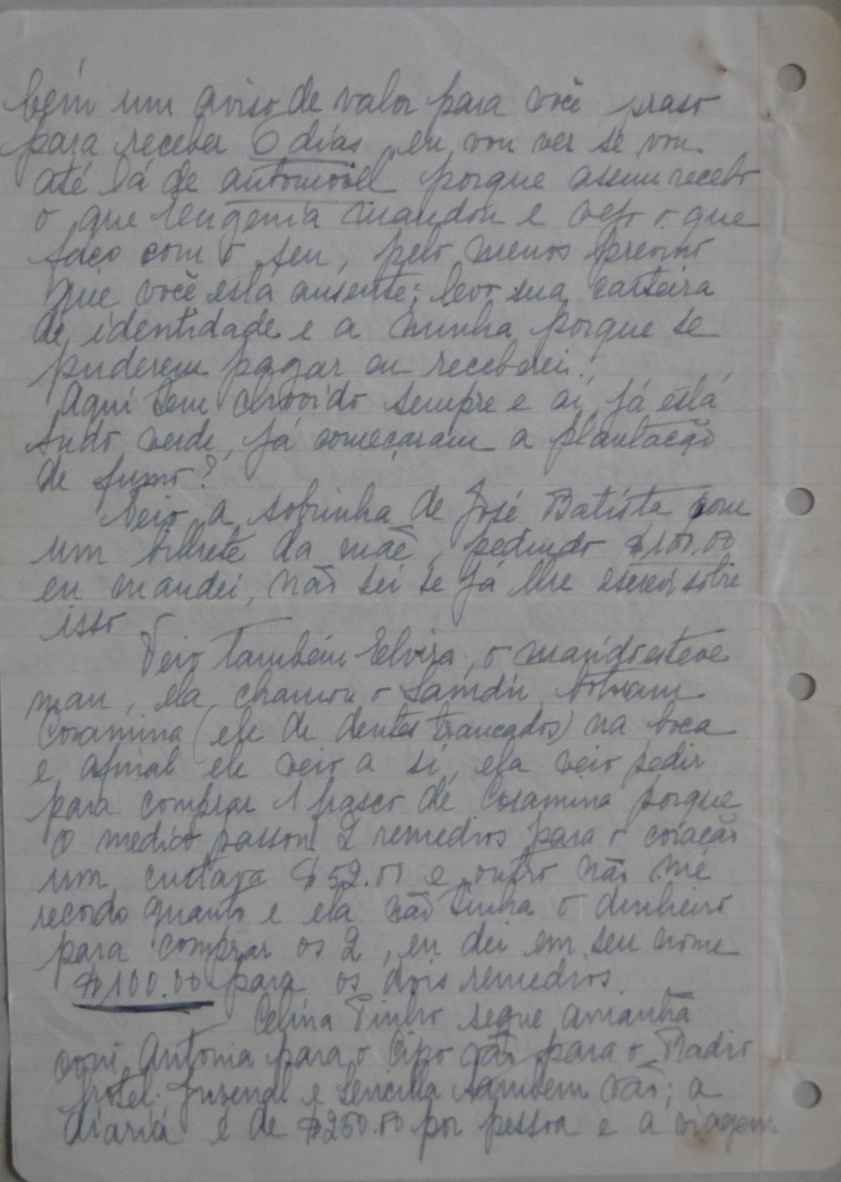 bém um aviso de valor para você praso
para receber 6 dias, eu vou ver se vou
até lá de automovel porque assim recebo
o que Eugenia mandou e vejo o que
faço com o seu, pelo menos previno
que você está ausente; levo sua carteira
de identidade e a minha porque se
puderem pagar eu receberei.
Aqui tem chovido sempre e aí, já está
tudo verde, já começaram a plantação
de fumo?
Veio a sobrinha de José Batista com
um bilhete da mãe, pedindo $100.00
eu mandei, não sei se já lhe escrevi sobre
isso
Veio também Elvira, o marido esteve
mau, ela chamou o Samdu, botaram
Coramina (ele de dentes trancados) na boca
e afinal ele veio a si, ela veio pedir
para comprar 1 frasco de Coramina porque
o medico passou 2 remedios para o coração
um custava $52.00 e outro não me
recordo quanto e ela não tinha o dinheiro
para comprar os 2, eu dei em seu nome
$100.00 para os dois remedios.
Celina Pinho segue amanhã
com Antonia para o Cipo vão para o Radio
hotel. Juvenal e também vão; a
diaria é de $250.00 por pessoa e a viagem